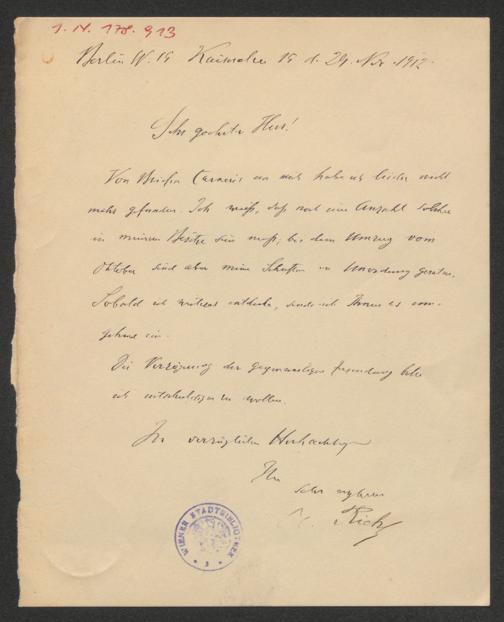 I. N. 178.913
Berlin W. 15 Kaiserallee 15 d. 29. Nov. 1912.
Sehr geehrter Herr!
Von Briefen Carneris an mich habe ich leider nicht
mehr gefunden. Ich weiß, daß noch eine Anzahl solcher
in meinem Besitze sein muß; bei dem Umzug vom
Oktober sind aber meine Schriften in Unordnung geraten.
Sobald ich weiteres entdecke, sende ich Ihnen es um-
gehend ein.
Die Verzögerung der gegenwärtigen Zusendung bitte
ich entschuldigen zu wollen.
In vorzüglicher Hochachtung
Ihr
sehr ergebener
WIENER STADTBIBLIOTHEK